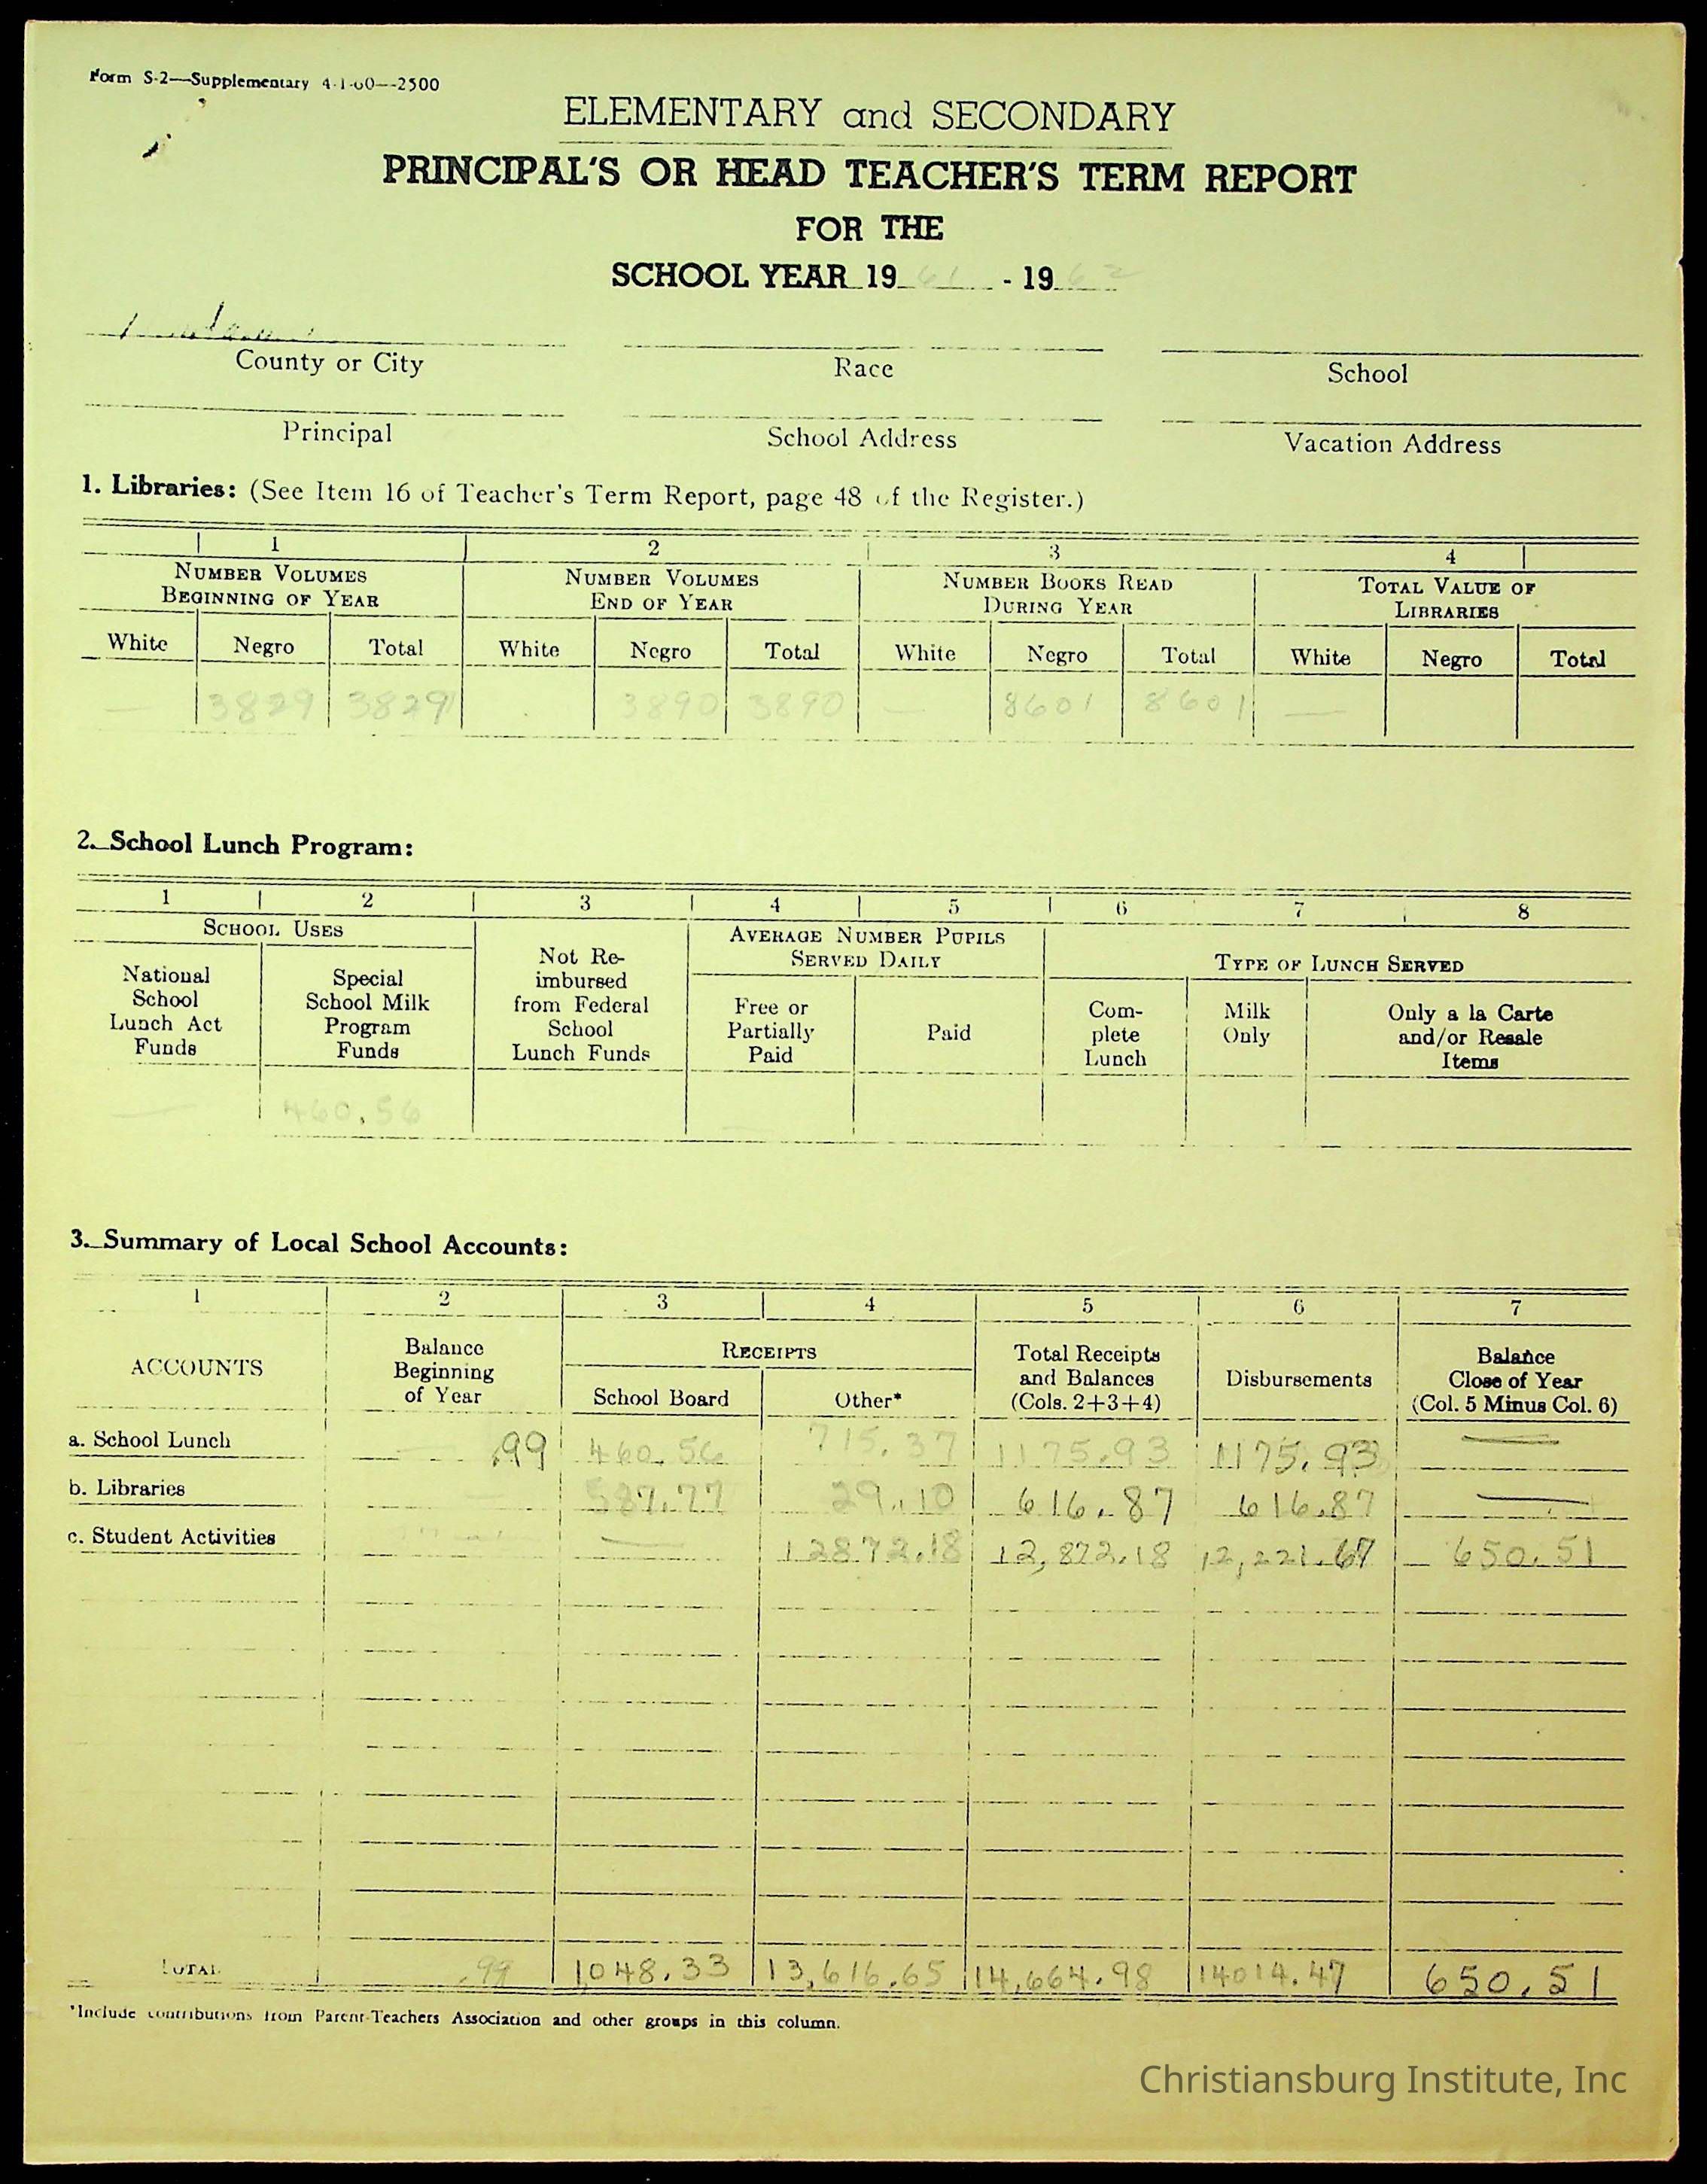 Form S-2—Supplementary 4-1-60—2500
ELEMENTARY and SECONDARY
PRINCIPAL'S OR HEAD TEACHER'S TERM REPORT
FOR THE
SCHOOL YEAR 1961 - 1962
County or City Race School
Principal School Address Vacation Address
1. Libraries: (See Item 16 of Teacher's Term Report, page 48 of the Register.)
1 2 3 4
NUMBER VOLUMES NUMBER VOLUMES NUMBER BOOKS READ TOTAL VALUE OF
BEGINNING OF YEAR END OF YEAR DURING YEAR LIBRARIES
White Negro Total White Negro Total White Negro Total White Negro Total
— 3829 3829 3890 3890 — 8601 8601 —
2. School Lunch Program:
1 2 3 4 5 6 7 8
SCHOOL USES AVERAGE NUMBER PUPILS
SERVED DAILY TYPE OF LUNCH SERVED
National Special Not Re-
School School Milk imbursed Free or Com- Milk Only a la Carte
Lunch Act Program from Federal Partially Paid plete Only and/or Resale
Funds Funds School Paid Lunch Items
Lunch Funds
— 460.56
3. Summary of Local School Accounts:
1 2 3 4 5 6 7
Balance RECEIPTS Total Receipts Balance
ACCOUNTS Beginning and Balances Disbursements Close of Year
of Year School Board Other* (Cols. 2+3+4) (Col. 5 Minus Col. 6)
a. School Lunch .99 460.56 715.37 1175.93 1175.93 —
b. Libraries 587.77 29.10 616.87 616.87 —
c. Student Activities — 12872.18 12,872.18 12,221.67 650.51
TOTAL .99 1048.33 13,616.65 14,664.98 14014.47 650.51
*Include contributions from Parent-Teachers Association and other groups in this column.
Christiansburg Institute, Inc